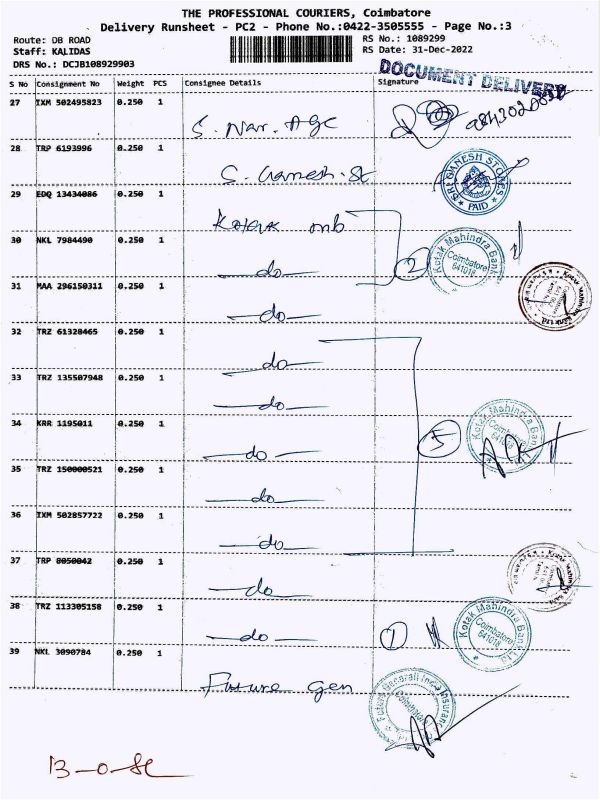 THE PROFESSIONAL COURIERS, Coimbatore
Delivery Runsheet - PC2 - Phone No.:0422-3505555 - Page No.:3
Route: DB ROAD
RS No.: 1089299
Staff: KALIDAS
RS Date: 31-Dec-2022
DRS No.: DCJB108929903
DOCUMENT DELIVERY
S No Consignment No Weight PCS Consignee Details Signature
27 IXM 502495823 0.250 1
S. Nar. Age
28 TRP 6193996 0.250 1
S. Ganesh. St
SRI GANESH STORES
PAID
29 EDQ 13434086 0.250 1
Kotak mb
30 NKL 7984490 0.250 1
do
2
Kotak Mahindra Bank
Coimbatore
641018
31 MAA 296150311 0.250 1
do
Kotak Mahindra Bank Ltd.
32 TRZ 61328465 0.250 1
do
33 TRZ 135507948 0.250 1
do
34 KRR 1195011 0.250 1
do
5
Kotak Mahindra Bank
Coimbatore
641018
35 TRZ 150000521 0.250 1
do
36 IXM 502857722 0.250 1
do
37 TRP 8050042 0.250 1
do
38 TRZ 113305158 0.250 1
do
1
Kotak Mahindra Bank Ltd
Coimbatore
641018
39 NKL 3090784 0.250 1
Future Gen
Future Generali India Insurance
Coimbatore